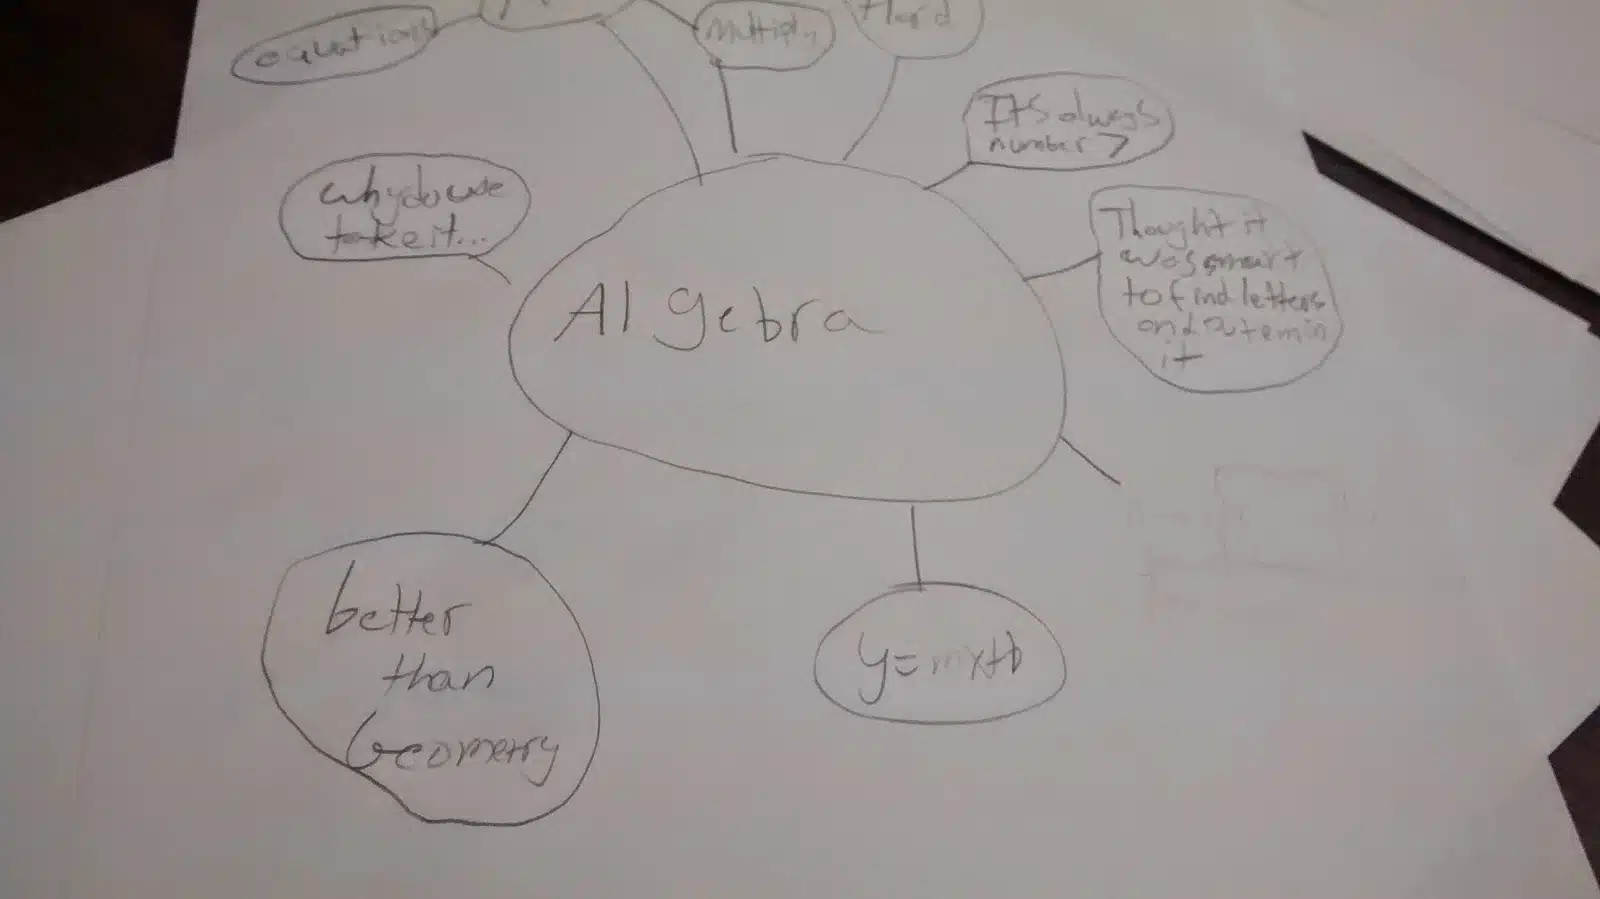 equations
Multiply
Hard
Its always
number 7
why do we
take it...
Thought it
was smart
to find letters
and putem in
it
Algebra
better
than
Geometry
y=mx+b